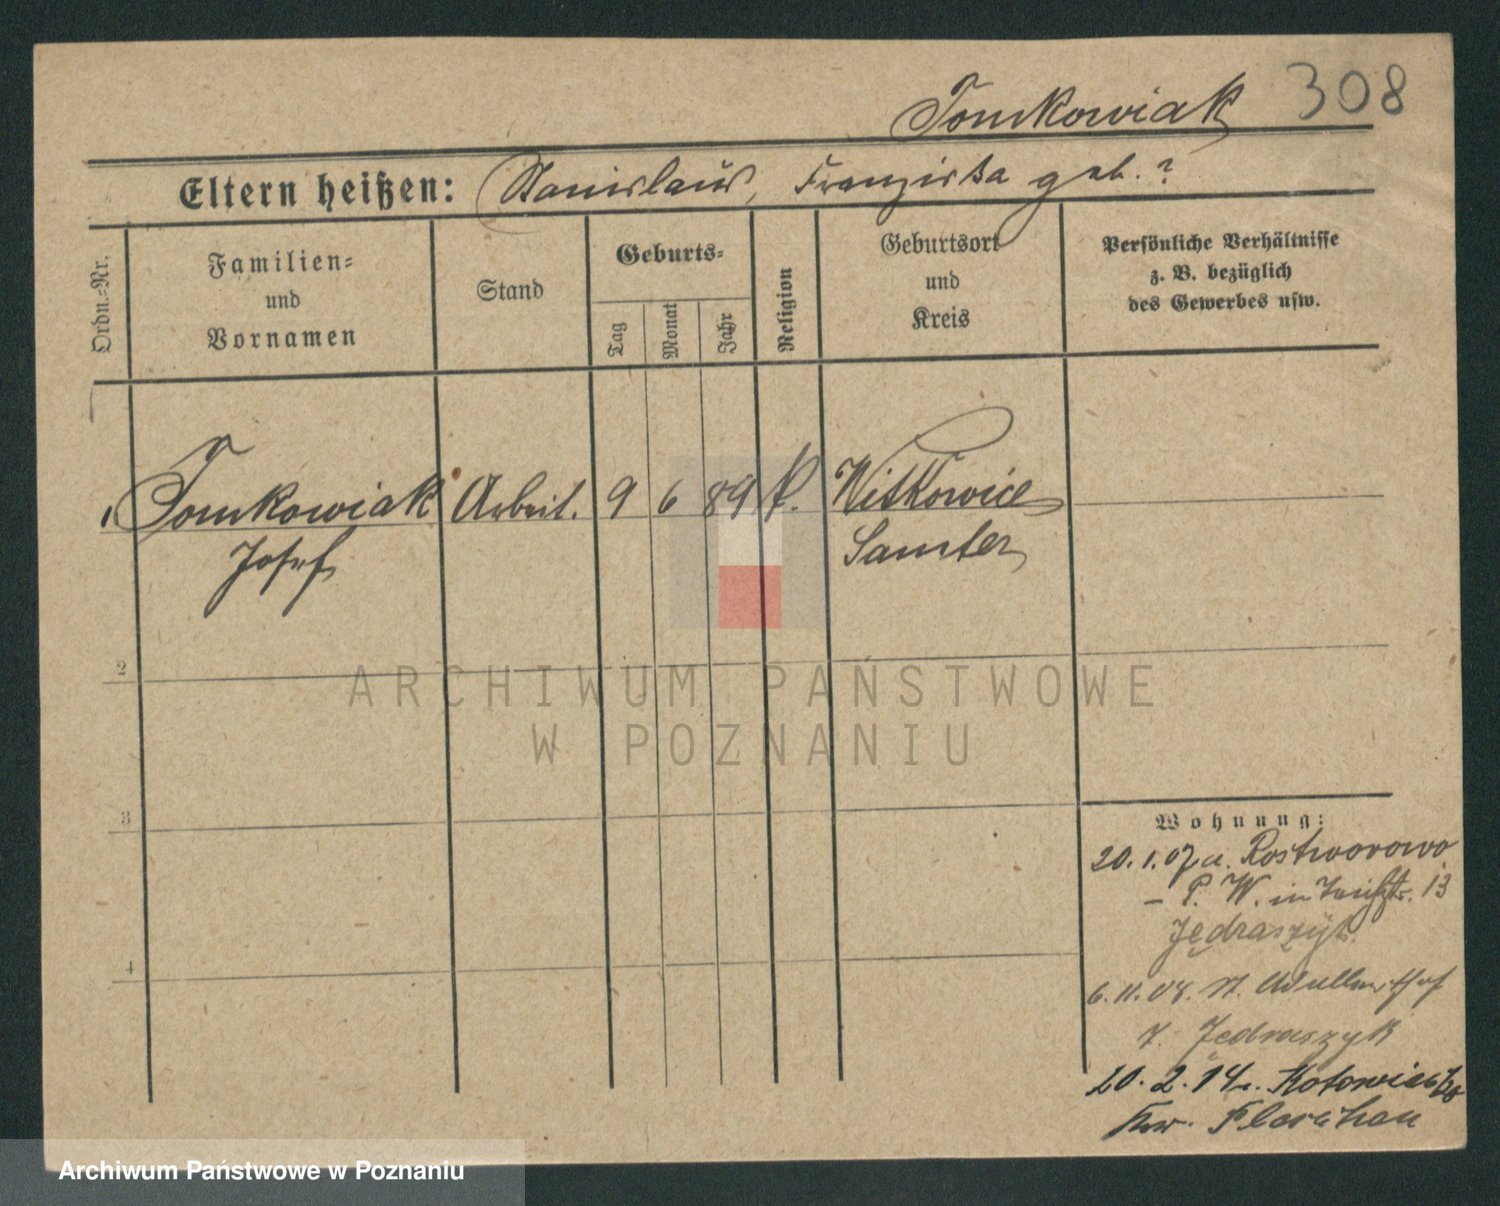 Tomkowiak 308
Eltern heißen: Stanislaus, Franziska geb. ?
Ordn.-Nr.
Familien-
und
Vornamen
Stand
Geburts-
Tag
Monat
Jahr
Religion
Geburtsort
und
Kreis
Persönliche Verhältnisse
z. B. bezüglich
des Gewerbes usw.
1 Tomkowiak Arbeit. 9 6 89 k. Witkowice
Josef Samter
2
3
4
Wohnung:
20. 1. 07 a. Rostworowo
– P. W. in 13
Jędraszyk
6. 11. 08. St.
7. Jedraszyk
20. 2. 14 Kotowice
ARCHIWUM PAŃSTWOWE
W POZNANIU
Archiwum Państwowe w Poznaniu